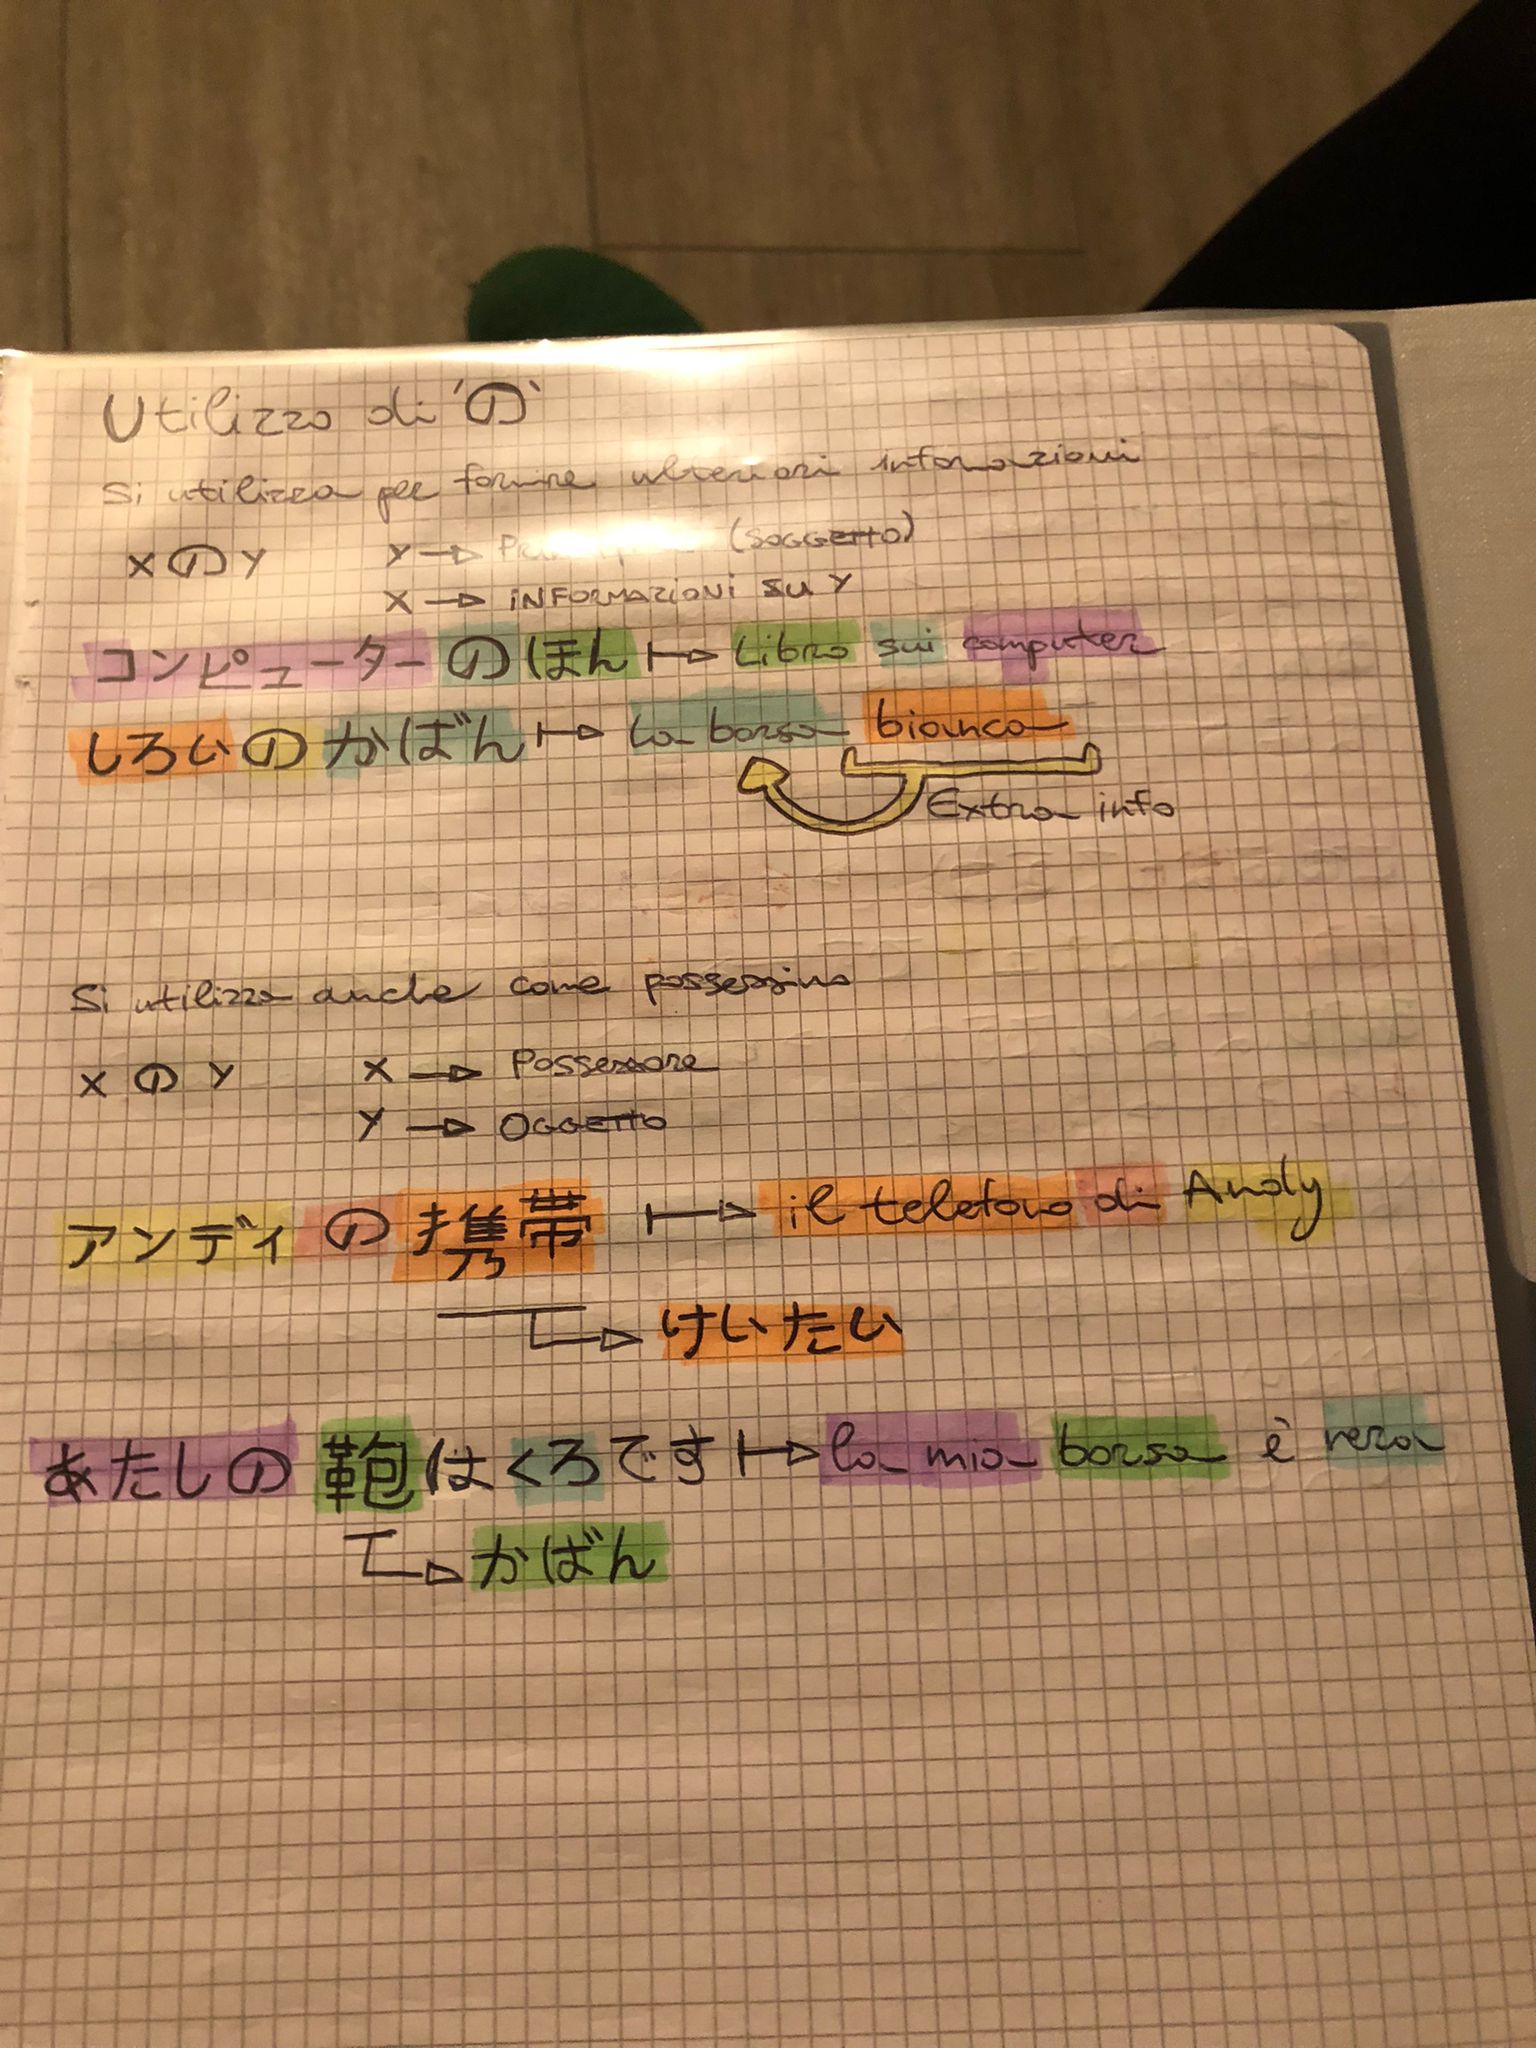 Utilizzo di 'の'
Si utilizza per fornire ulteriori informazioni
X の Y Y → (SOGGETTO)
X → INFORMAZIONI SU Y
コンピューターのほん ↦ Libro sui computer
しろいのかばん ↦ la borsa bianca
Extra info
Si utilizza anche come possessivo
X の Y X → Possessore
Y → OGGETTO
アンディの携帯 ↦ il telefono di Andy
けいたい
あたしの鞄はくろです ↦ la mia borsa è nera
かばん